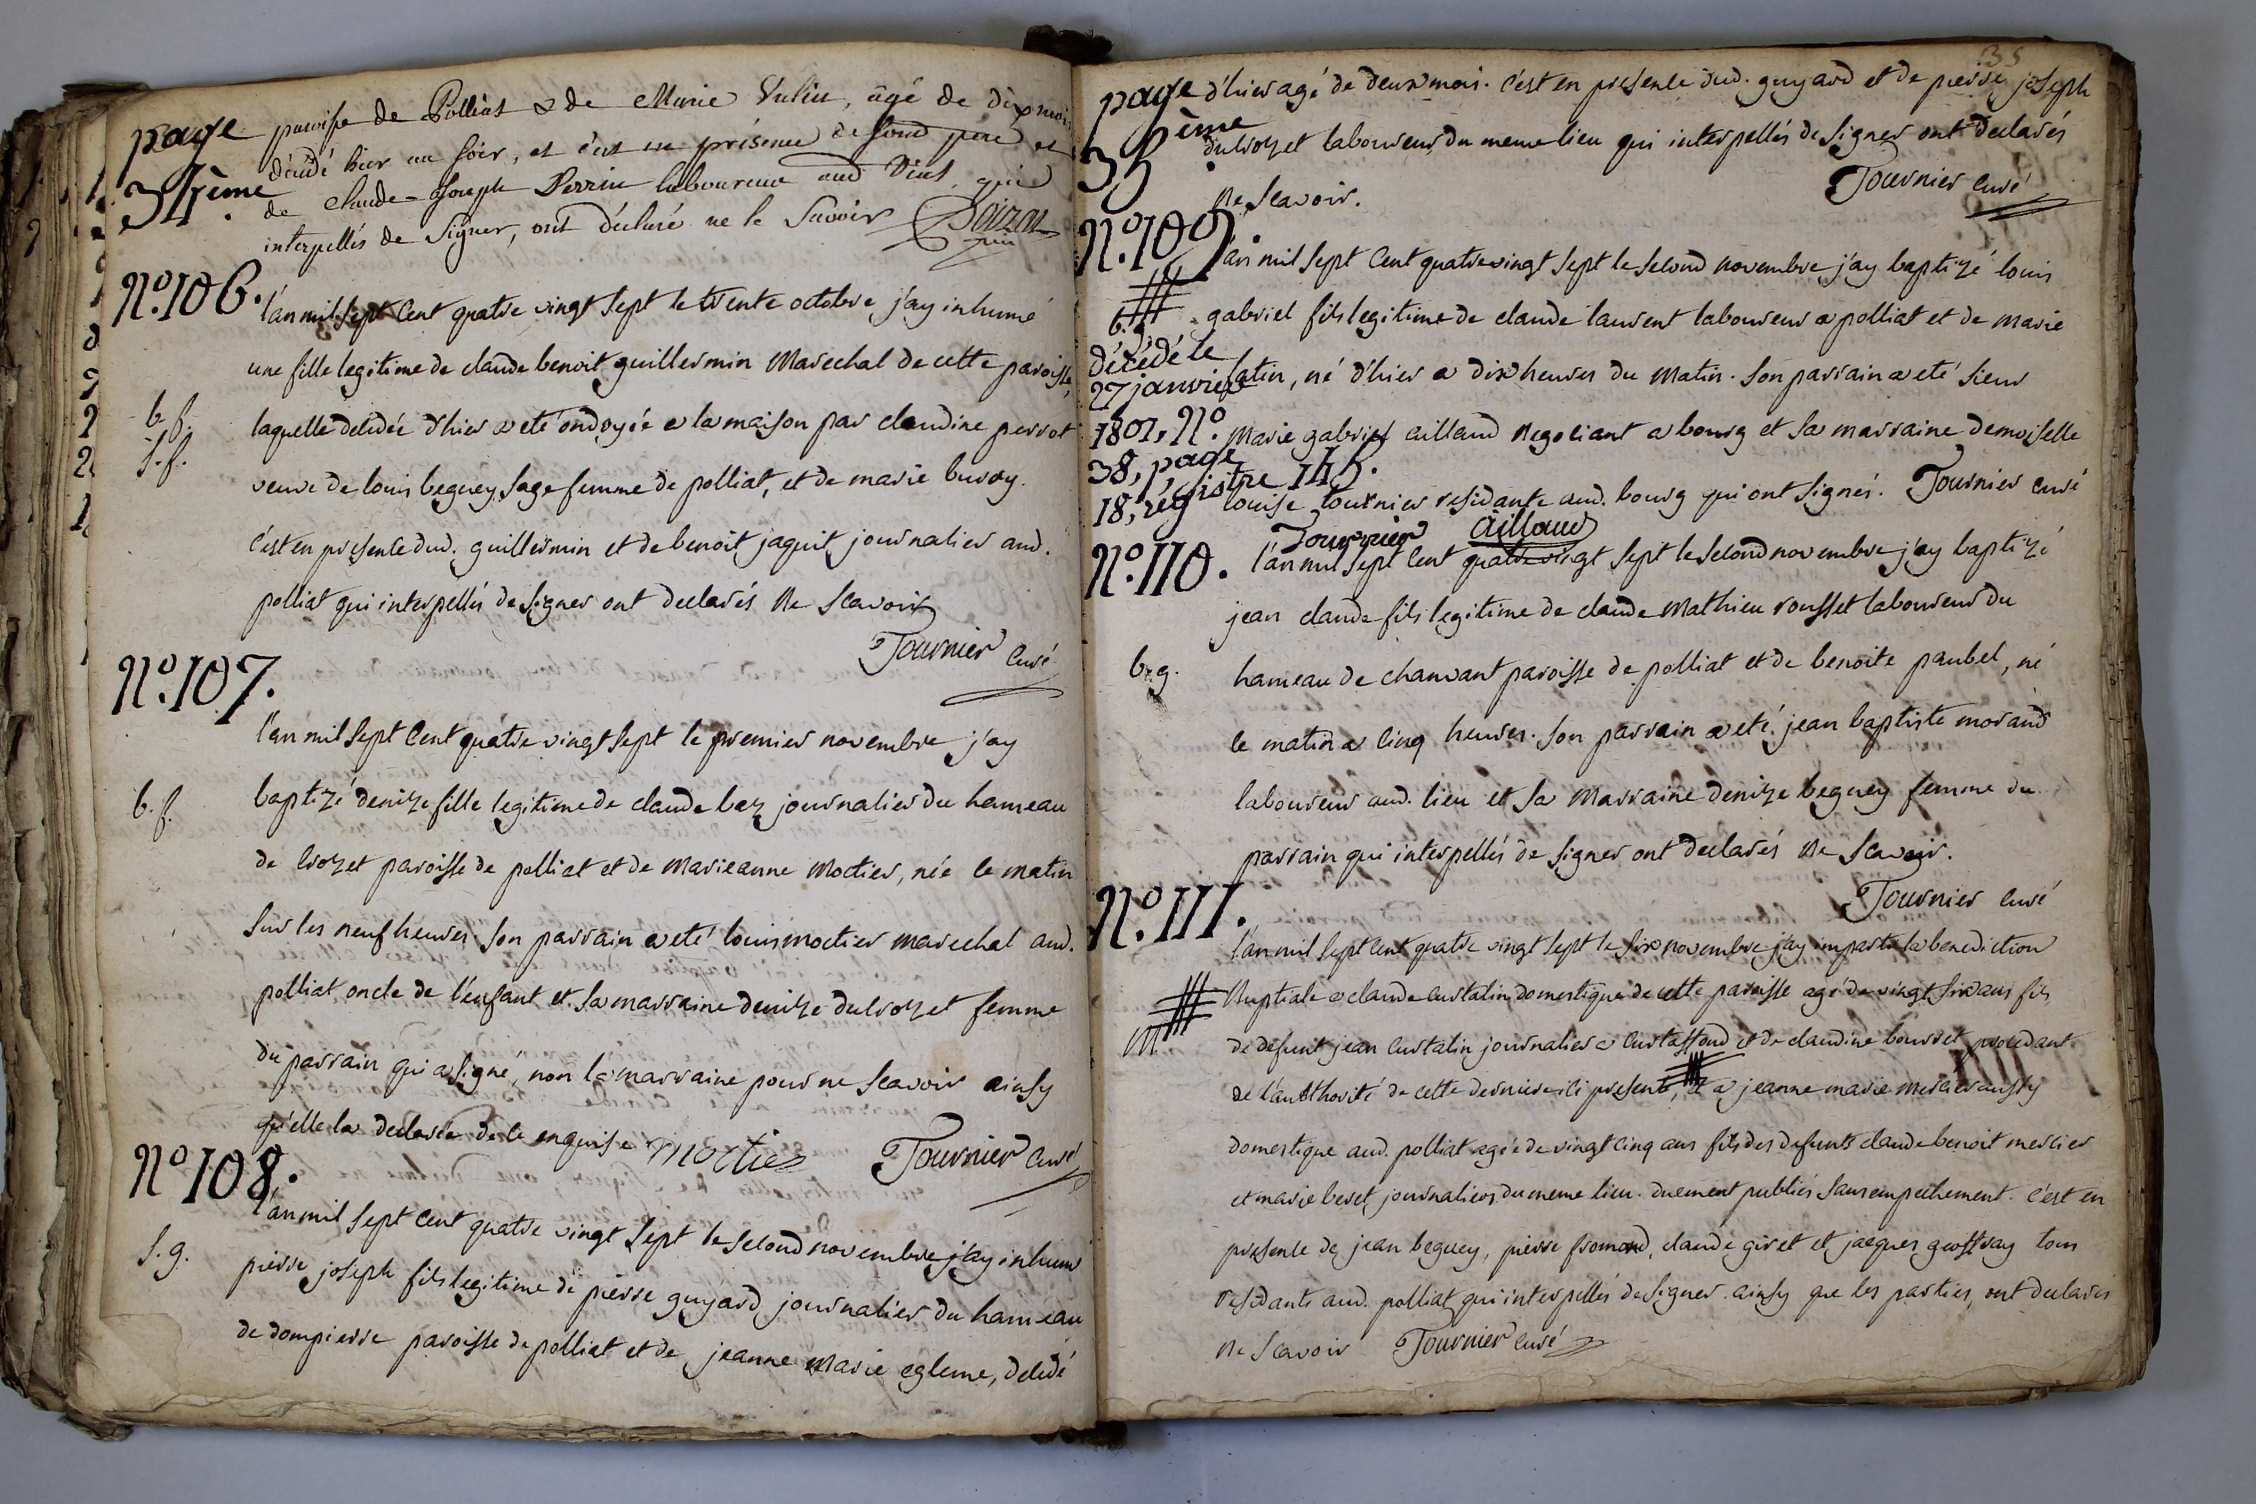 page 34ème.
paroisse de Polliat & de Marie Vulin, âgé de dix mois
décédé hier au soir, et c'est en présence de sond. père et
de Claude-Joseph Perrin laboureur aud. Vial, qui
interpellés de signer, ont déclaré ne le savoir
N.º 106.
l'an mil sept cent quatre vingt sept le trente octobre j'ay inhumé
une fille legitime de claude benoit guillermin marechal de cette paroisse,
b. f.
s. f.
laquelle decedée d'hier a eté ondoyée a la maison par claudine perrot
veuve de louis beguey sage femme de polliat, et de marie buvoy.
c'est en presence dud. guillermin et de benoit jaquit journalier aud.
polliat qui interpellés de signer ont declarés ne scavoir
Tournier curé
N.º 107.
l'an mil sept cent quatre vingt sept le premier novembre j'ay
b. f.
baptizé denize fille legitime de claude baz journalier du hameau
de crozet paroisse de polliat et de marieanne moctier, née le matin
sur les neuf heures son parrain a eté louis moctier marechal aud.
polliat oncle de l'enfant et sa marraine denize ducrozet femme
du parrain qui a signé, non la marraine pour ne scavoir ainsy
qu'elle la declarée de ce enquise moctier Tournier curé
Nº 108.
l'an mil sept cent quatre vingt sept le second novembre j'ay inhumé
s. g.
pierre joseph fils legitime de pierre guyard journalier du hameau
de dompierre paroisse de polliat et de jeanne marie egleme, decedé
35
page 35ème.
d'hier agé de deux mois. c'est en presence dud. guyard et de pierre joseph
ducrozet laboureur du meme lieu qui interpellés de signer ont declarés
ne scavoir.
Tournier curé
N.º 109.
l'an mil sept cent quatre vingt sept le second novembre j'ay baptizé louis
b. g.
gabriel fils legitime de claude laurent laboureur a polliat et de marie
décédé le
27 janvier
1807, N.º
38, page
18, régistre 145.
catin, né d'hier a dix heures du matin. son parrain a eté sieur
marie gabriel aillaud negociant a bourg et sa marraine demoiselle
louise tournier residante aud. bourg qui ont signés. Tournier curé
Tournier aillaud
N.º 110.
l'an mil sept cent quatre vingt sept le second novembre j'ay baptizé
jean claude fils legitime de claude mathieu rousset laboureur du
b. g.
hameau de chanvant paroisse de polliat et de benoite paubel, né
le matin a cinq heures. son parrain a eté jean baptiste morand
laboureur aud. lieu et sa marraine denize beguey femme du
parrain qui interpellés de signer ont declarés ne scavoir.
Tournier curé
N.º 111.
l'an mil sept cent quatre vingt sept le six novembre j'ay imparti la benediction
m
nuptiale a claude curtalin domestique de cette paroisse agé de vingt six ans fils
de defunt jean curtalin journalier a curtaffond et de claudine bourret procedant
de l'authorité de cette derniere ici presente, et a jeanne marie mercier aussy
domestique aud. polliat agée de vingt cinq ans fils des defunts claude benoit mercier
et marie beret journaliers du meme lieu. duement publiés sans empechement. c'est en
presence de jean beguey, pierre fromond, claude givet et jacques geoffray tous
residants aud. polliat qui interpellés de signer ainsy que les parties, ont declarés
ne scavoir Tournier curé